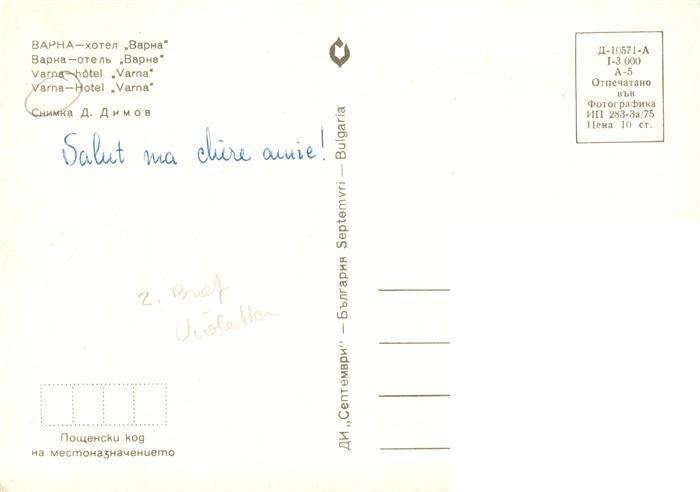 ВАРНА—хотел „Варна"
Варна—отель „Варна"
Varna—hôtel „Varna"
Varna—Hotel „Varna"
Снимка Д. Димов
Salut ma chère amie!
2. Brief
Violetta
Пощенски код
на местоназначението
ДИ „Септември" — България Septemvri — Bulgaria
Д-10571-А
I-3 000
А-5
Отпечатано
във
Фотографика
ИП 283-3а/75
Цена 10 ст.